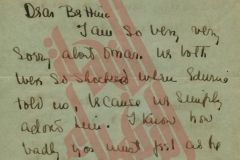 Dear
I am so very, very
sorry about Omar. We both
were so shocked when Edward
told us, because we simply
adored him. I know how
badly you must feel as he